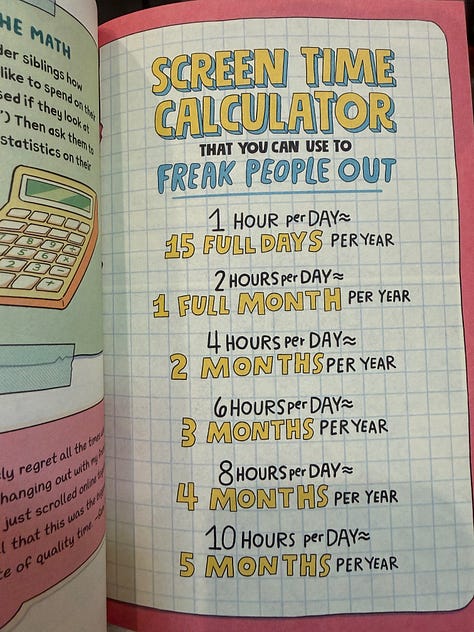 HE MATH
der siblings how
like to spend on their
sed if they look at
") Then ask them to
statistics on their
7 8 9
SCREEN TIME
CALCULATOR
THAT YOU CAN USE TO
FREAK PEOPLE OUT
1 HOUR per DAY≈
15 FULL DAYS PER YEAR
2 HOURS per DAY≈
1 FULL MONTH PER YEAR
4 HOURS per DAY≈
2 MONTHS PER YEAR
6 HOURS per DAY≈
3 MONTHS PER YEAR
8 HOURS per DAY≈
4 MONTHS PER YEAR
10 HOURS per DAY≈
5 MONTHS PER YEAR
ly regret all the times
hanging out with my
just scrolled online
l that this was the
te of quality time.